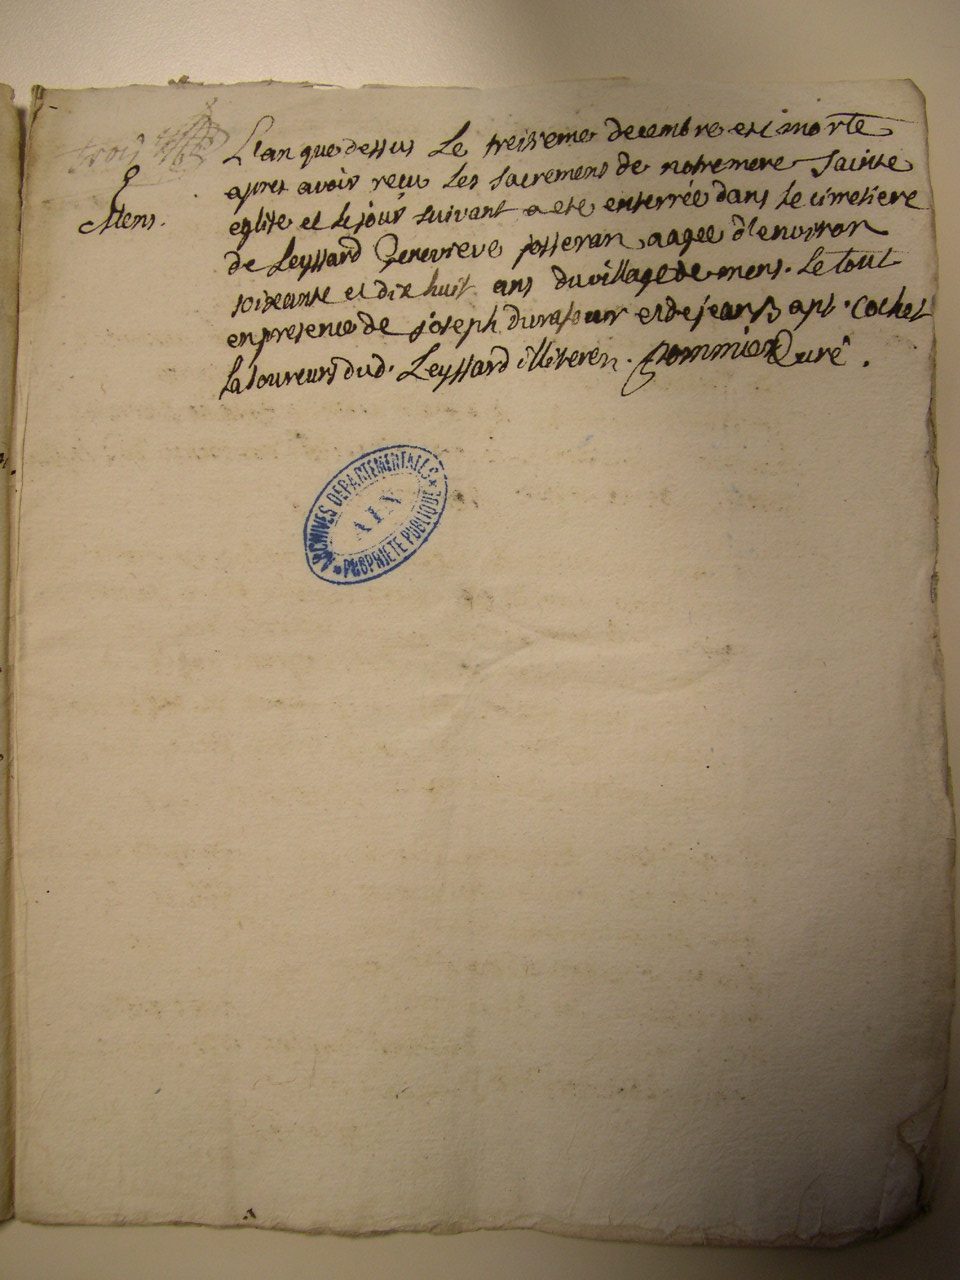 trois
Mens.
L'an que dessus Le treisieme decembre est morte
apres avoir recu Les sacremens de notre mere Sainte
eglise et le jour suivant a eté enterrée dans le cimetiere
de Leyssard Genevieve josseran aagée d'environ
soixante et dix huit ans du village de mens. Le tout
en presence de joseph durafour et de jean Bapt. Cochet
laboureurs dud. Leyssard illiteres. Pommier Curé.
ARCHIVES DEPARTEMENTALES
AIN
PROPRIETE PUBLIQUE